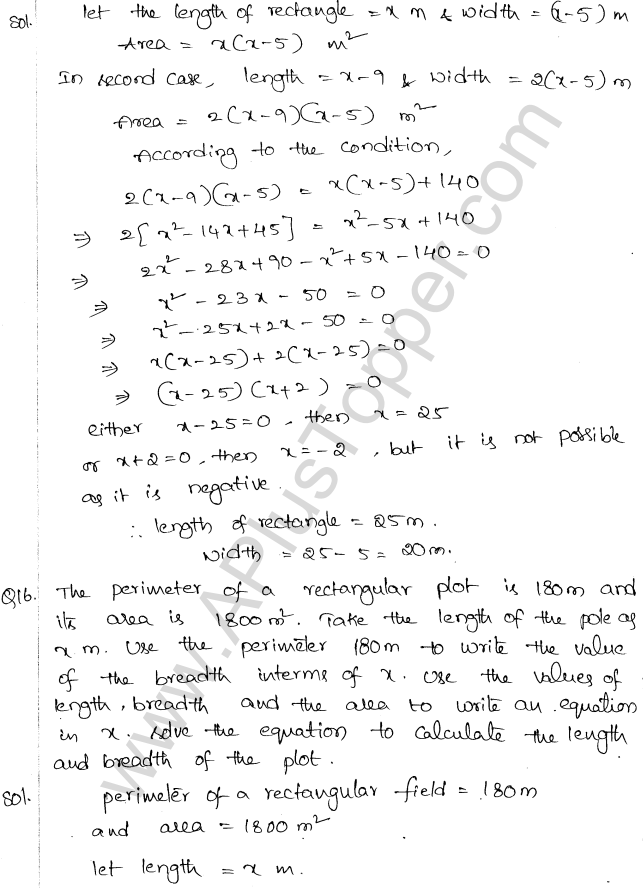 Sol. let the length of rectangle = x m & width = (x-5) m
Area = x(x-5) m²
In second case, length = x-9 & width = 2(x-5) m
Area = 2(x-9)(x-5) m²
According to the condition,
2(x-9)(x-5) = x(x-5)+140
⇒ 2[x²-14x+45] = x²-5x+140
⇒ 2x²-28x+90-x²+5x-140=0
⇒ x²-23x-50 = 0
⇒ x²-25x+2x-50 = 0
⇒ x(x-25)+2(x-25)=0
⇒ (x-25)(x+2) = 0
either x-25=0, then x = 25
or x+2=0, then x=-2, but it is not possible
as it is negative.
∴ length of rectangle = 25m.
width = 25-5 = 20m.
Q16. The perimeter of a rectangular plot is 180m and
its area is 1800m². Take the length of the pole as
x m. Use the perimeter 180m to write the value
of the breadth interms of x. Use the values of
length, breadth and the area to write an equation
in x. solve the equation to calculate the length
and breadth of the plot.
Sol. perimeter of a rectangular field = 180m
and area = 1800 m²
let length = x m.
www.APlusTopper.com